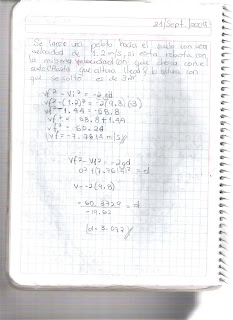 21/Sept./2009
Se lanza una pelota hacia el suelo con una
velocidad de 1.2 m/s, si esta rebota con
la misma velocidad con que choca con el
suelo ¿Hasta que altura llega? La altura con
que se soltó es de 3m
vf² - vi² = -2gd
vf² - (1.2)² = -2(9.8)(3)
vf² - 1.44 = -58.8
vf² = 58.8 + 1.44
vf² = 60.24
vf = -7.7614 m/s
vf² - vi² = -2gd
0² + (7.7614)² = d
v = -2(9.8)
-60.3729 = d
-19.62
d = 3.077